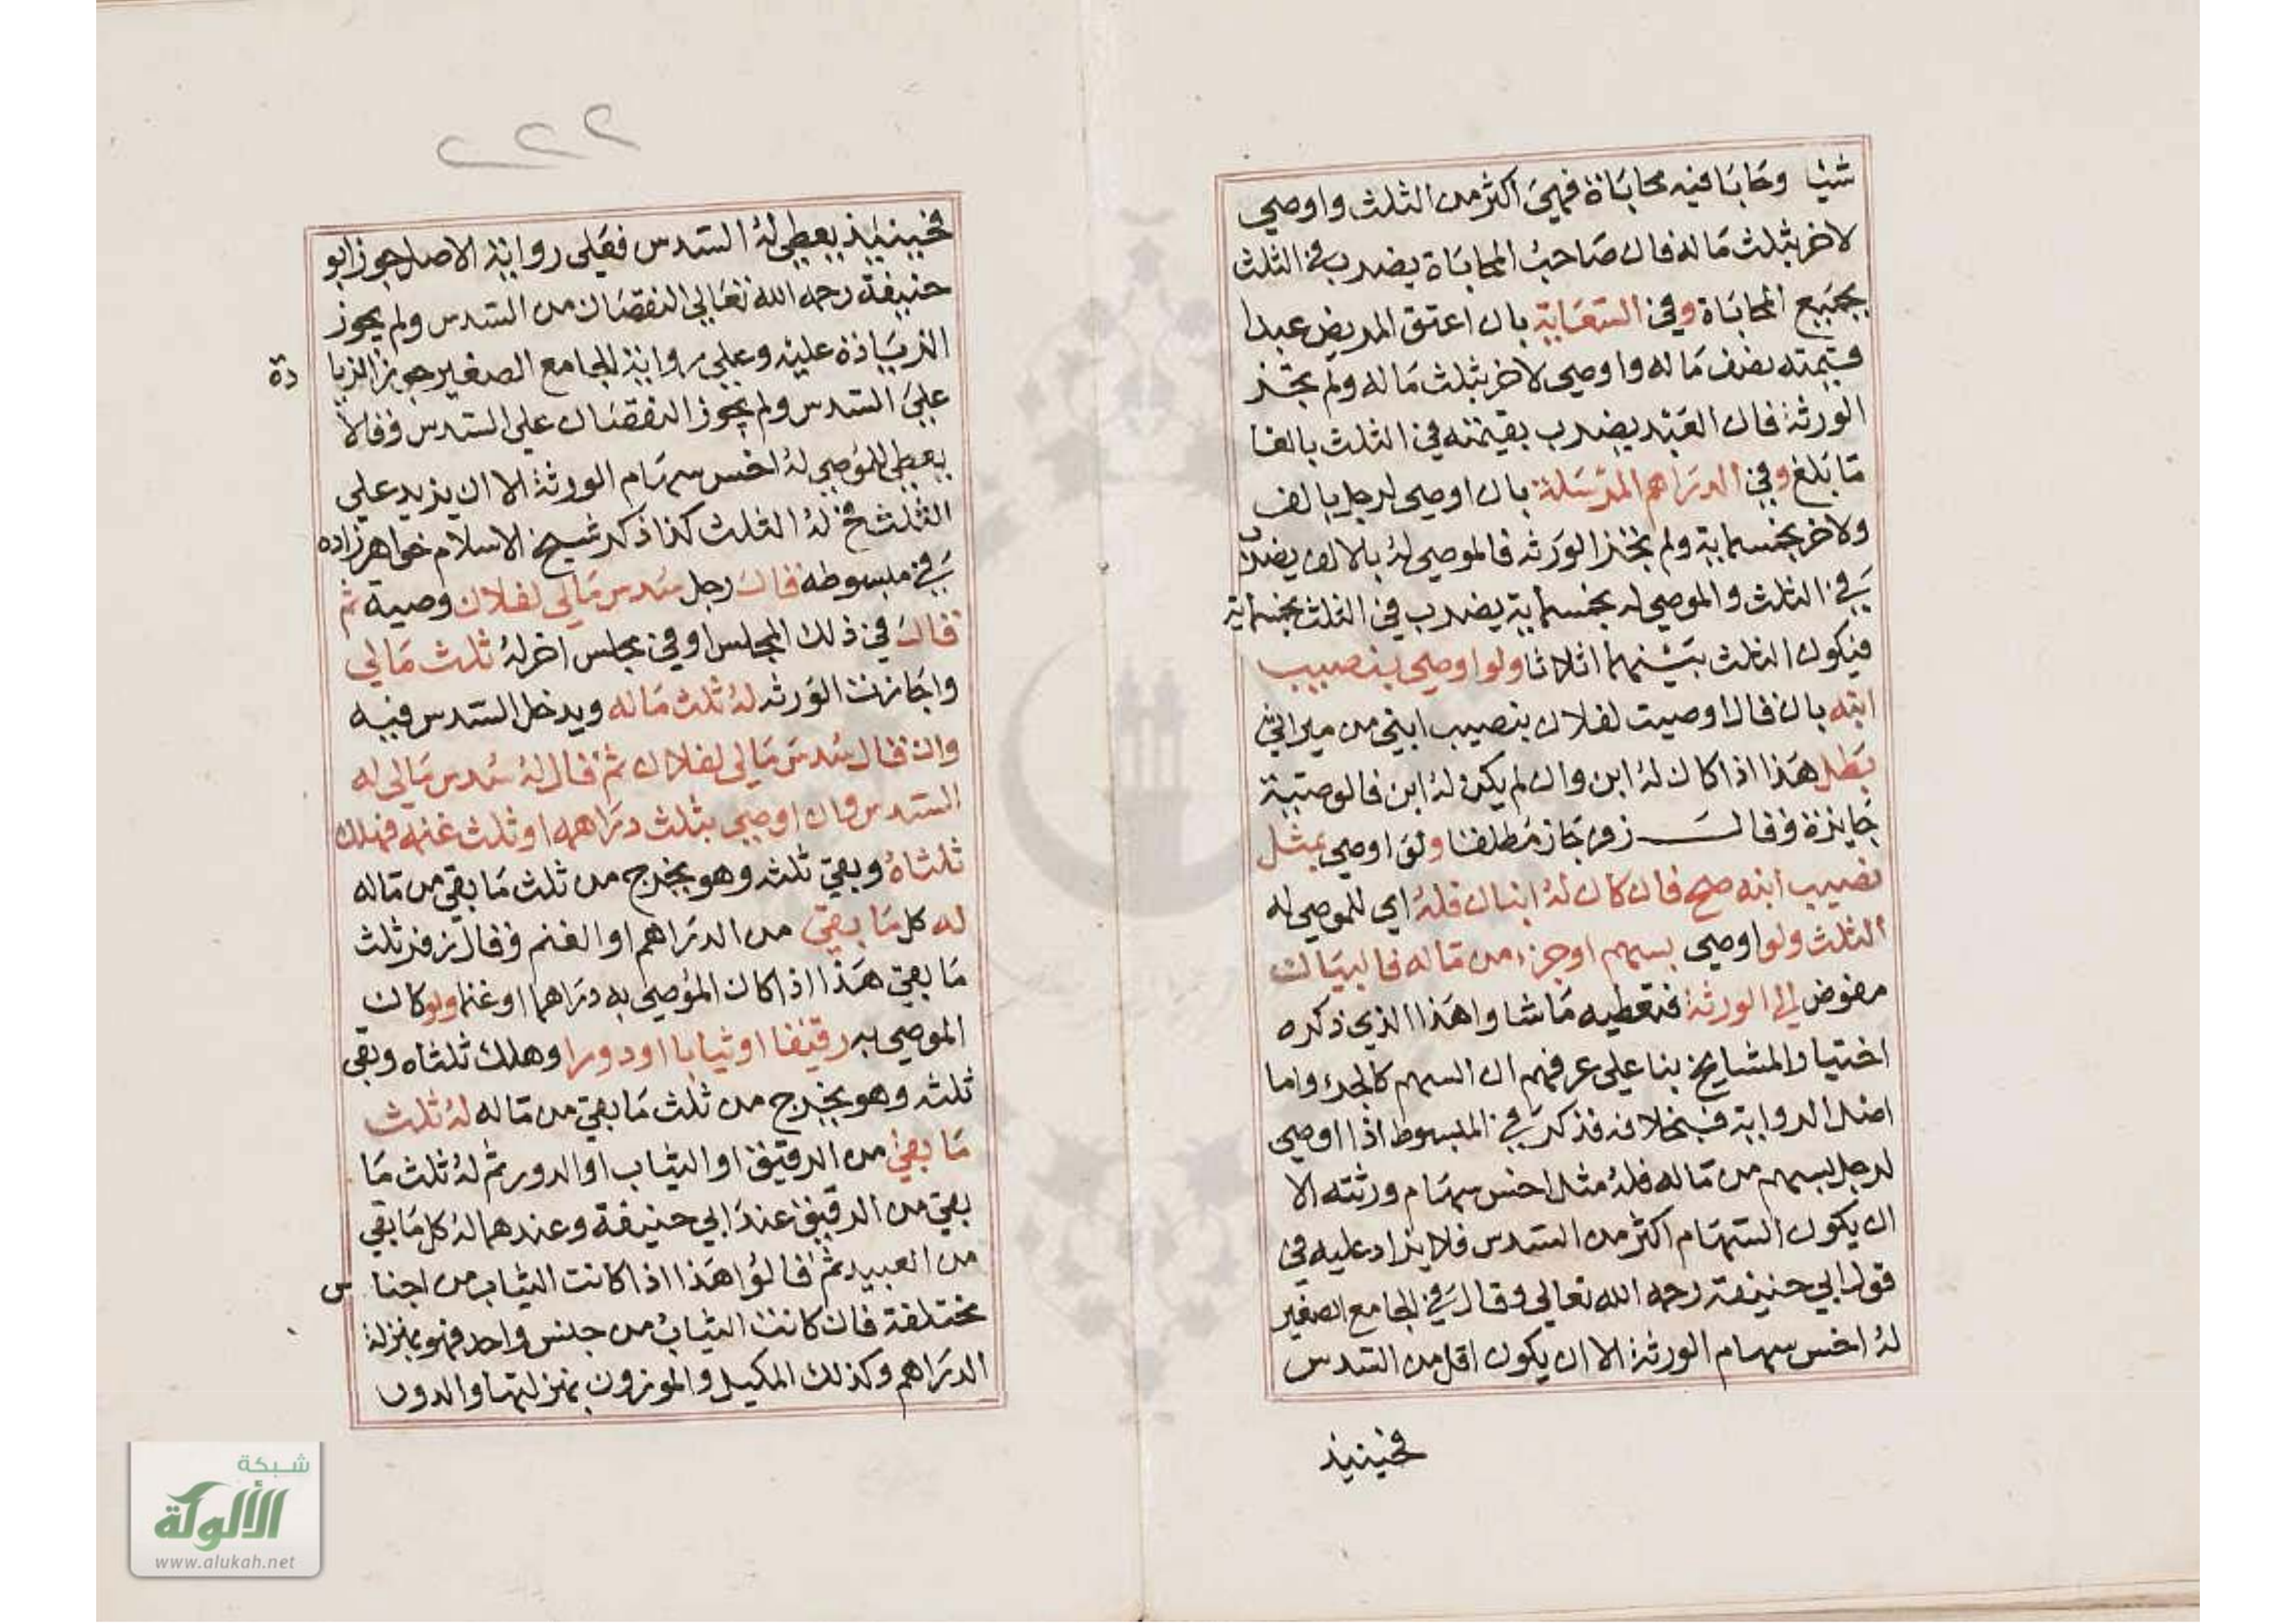 شيا وحابا فيه محاباة فهي اكثر من الثلث واوصي
لاخر بثلث ماله فان صاحب المحاباة يضرب في الثلث
بجميع المحاباة وفي السعاية بان اعتق المريض عبدا
قيمته نصف ماله واوصي لاخر بثلث ماله ولم تجز
الورثة فان العبد يضرب بقيمته في الثلث بالغا
ما بلغ وفي الدراهم المرسلة بان اوصي لرجل بالف
ولاخر بخمسماية ولم تجز الورثه فالموصي له بالالف يضرب
في الثلث والموصي له بخمسماية يضرب في الثلث بخمسماية
فيكون الثلث بينهما اثلاثا ولو اوصي بنصيب
ابنه بان قال اوصيت لفلان بنصيب ابني من ميراثي
بطل هذا اذا كان له ابن وان لم يكن له ابن فالوصية
جايزة وقال زفر جاز مطلقا ولو اوصي بمثل
نصيب ابنه صح فان كان له ابنان فله اي للموصي له
الثلث ولو اوصي بسهم او جزء من ماله فالبيان
مفوض الي الورثة فتعطيه ما شاوا هذا الذي ذكره
اختيار المشايخ بنا علي عرفهم ان السهم كالجزء واما
اصل الرواية فبخلافه فذكر في المبسوط اذا اوصي
لرجل بسهم من ماله فله مثل اخس سهام ورثته الا
ان يكون السهام اكثر من السدس فلا يزاد عليه في
قول ابي حنيفة رحمه الله تعالي وقال في الجامع الصغير
له اخس سهام الورثة الا ان يكون اقل من السدس
فحينيذ
٢٢٢
فحينيذ يعطي له السدس فعلي رواية الاصل جوز ابو
حنيفة رحمه الله تعالي النقصان من السدس ولم يجوز
الزيادة عليه وعلي رواية الجامع الصغير جوز الزيا دة
علي السدس ولم يجوز النقصان علي السدس وقالا
يعطي للموصي له اخس سهام الورثة الا ان يزيد علي
الثلث فح له الثلث كذا ذكر شيخ الاسلام خواهر زاده
في مبسوطه قال رجل سدس مالي لفلان وصية ثم
قال في ذلك المجلس او في مجلس اخر له ثلث مالي
واجازت الورثه له ثلث ماله ويدخل السدس فيه
وان قال سدس مالي لفلان ثم قال له سدس مالي له
السدس وان اوصي بثلث دراهمه او ثلث غنمه فهلك
ثلثاه وبقي ثلثه وهو يخرج من ثلث ما بقي من ماله
له كل ما بقي من الدراهم او الغنم وقال زفر ثلث
ما بقي هذا اذا كان الموصي به دراهما او غنما ولو كان
الموصي به رقيقا او ثيابا او دورا وهلك ثلثاه وبقي
ثلثه وهو يخرج من ثلث ما بقي من ماله له ثلث
ما بقي من الرقيق او الثياب او الدور ثم له ثلث ما
بقي من الرقيق عند ابي حنيفة وعندهما له كل ما بقي
من العبيد ثم قالوا هذا اذا كانت الثياب من اجنا س
مختلفة فان كانت الثياب من جنس واحد فهو بمنزلة
الدراهم وكذلك المكيل والموزون بمنزلتها والدور
شبكة
الألوكة
www.alukah.net